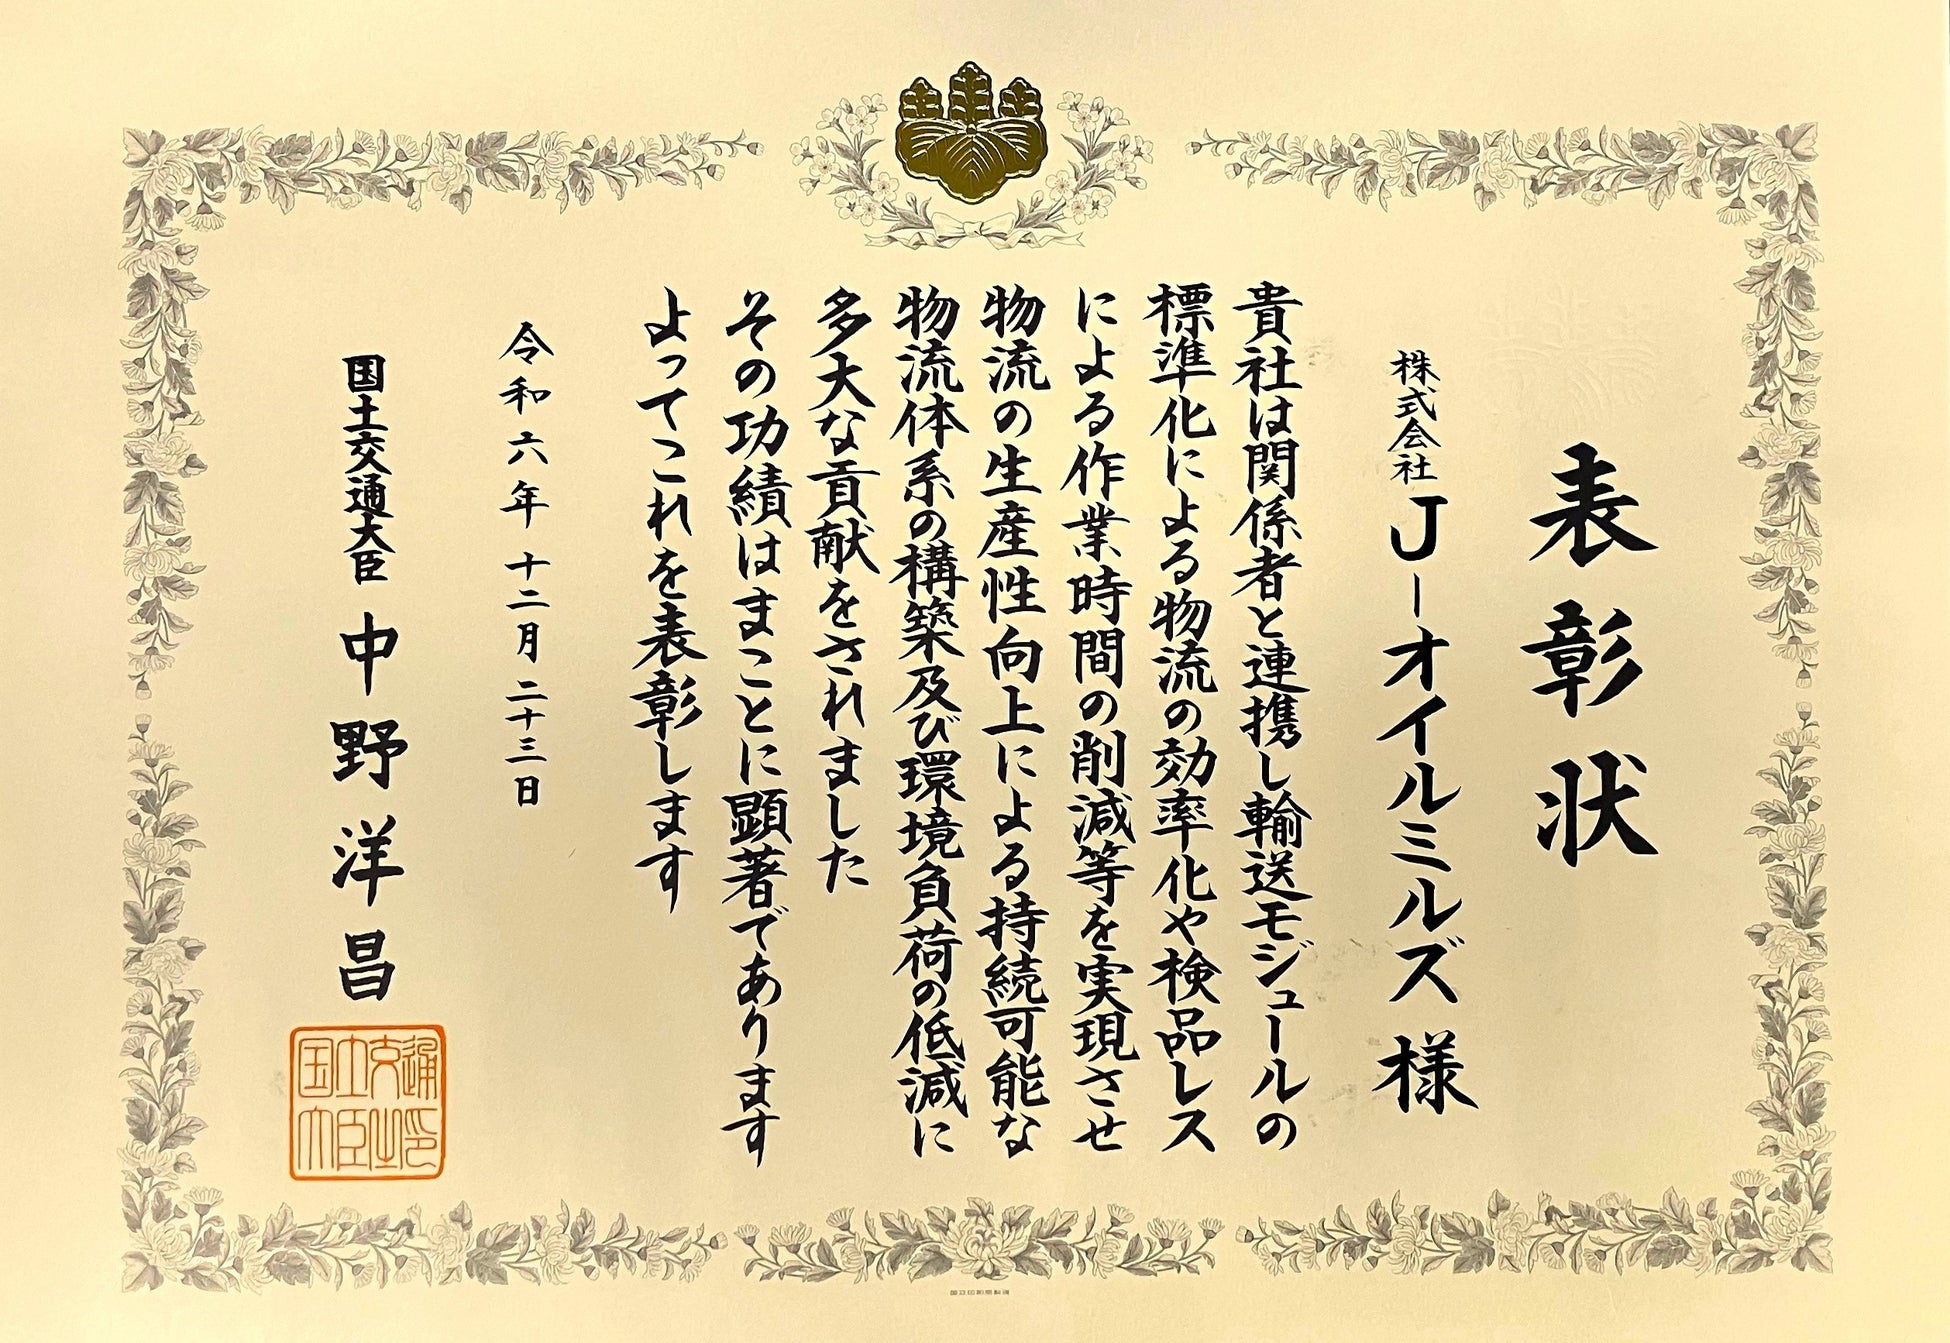 表彰状
株式会社J-オイルミルズ 様
貴社は関係者と連携し輸送モジュールの
標準化による物流の効率化や検品レス
による作業時間の削減等を実現させ
物流の生産性向上による持続可能な
物流体系の構築及び環境負荷の低減に
多大な貢献をされました
その功績はまことに顕著であります
よってこれを表彰します
令和六年十二月二十三日
国土交通大臣 中野洋昌
国土交通大臣之印